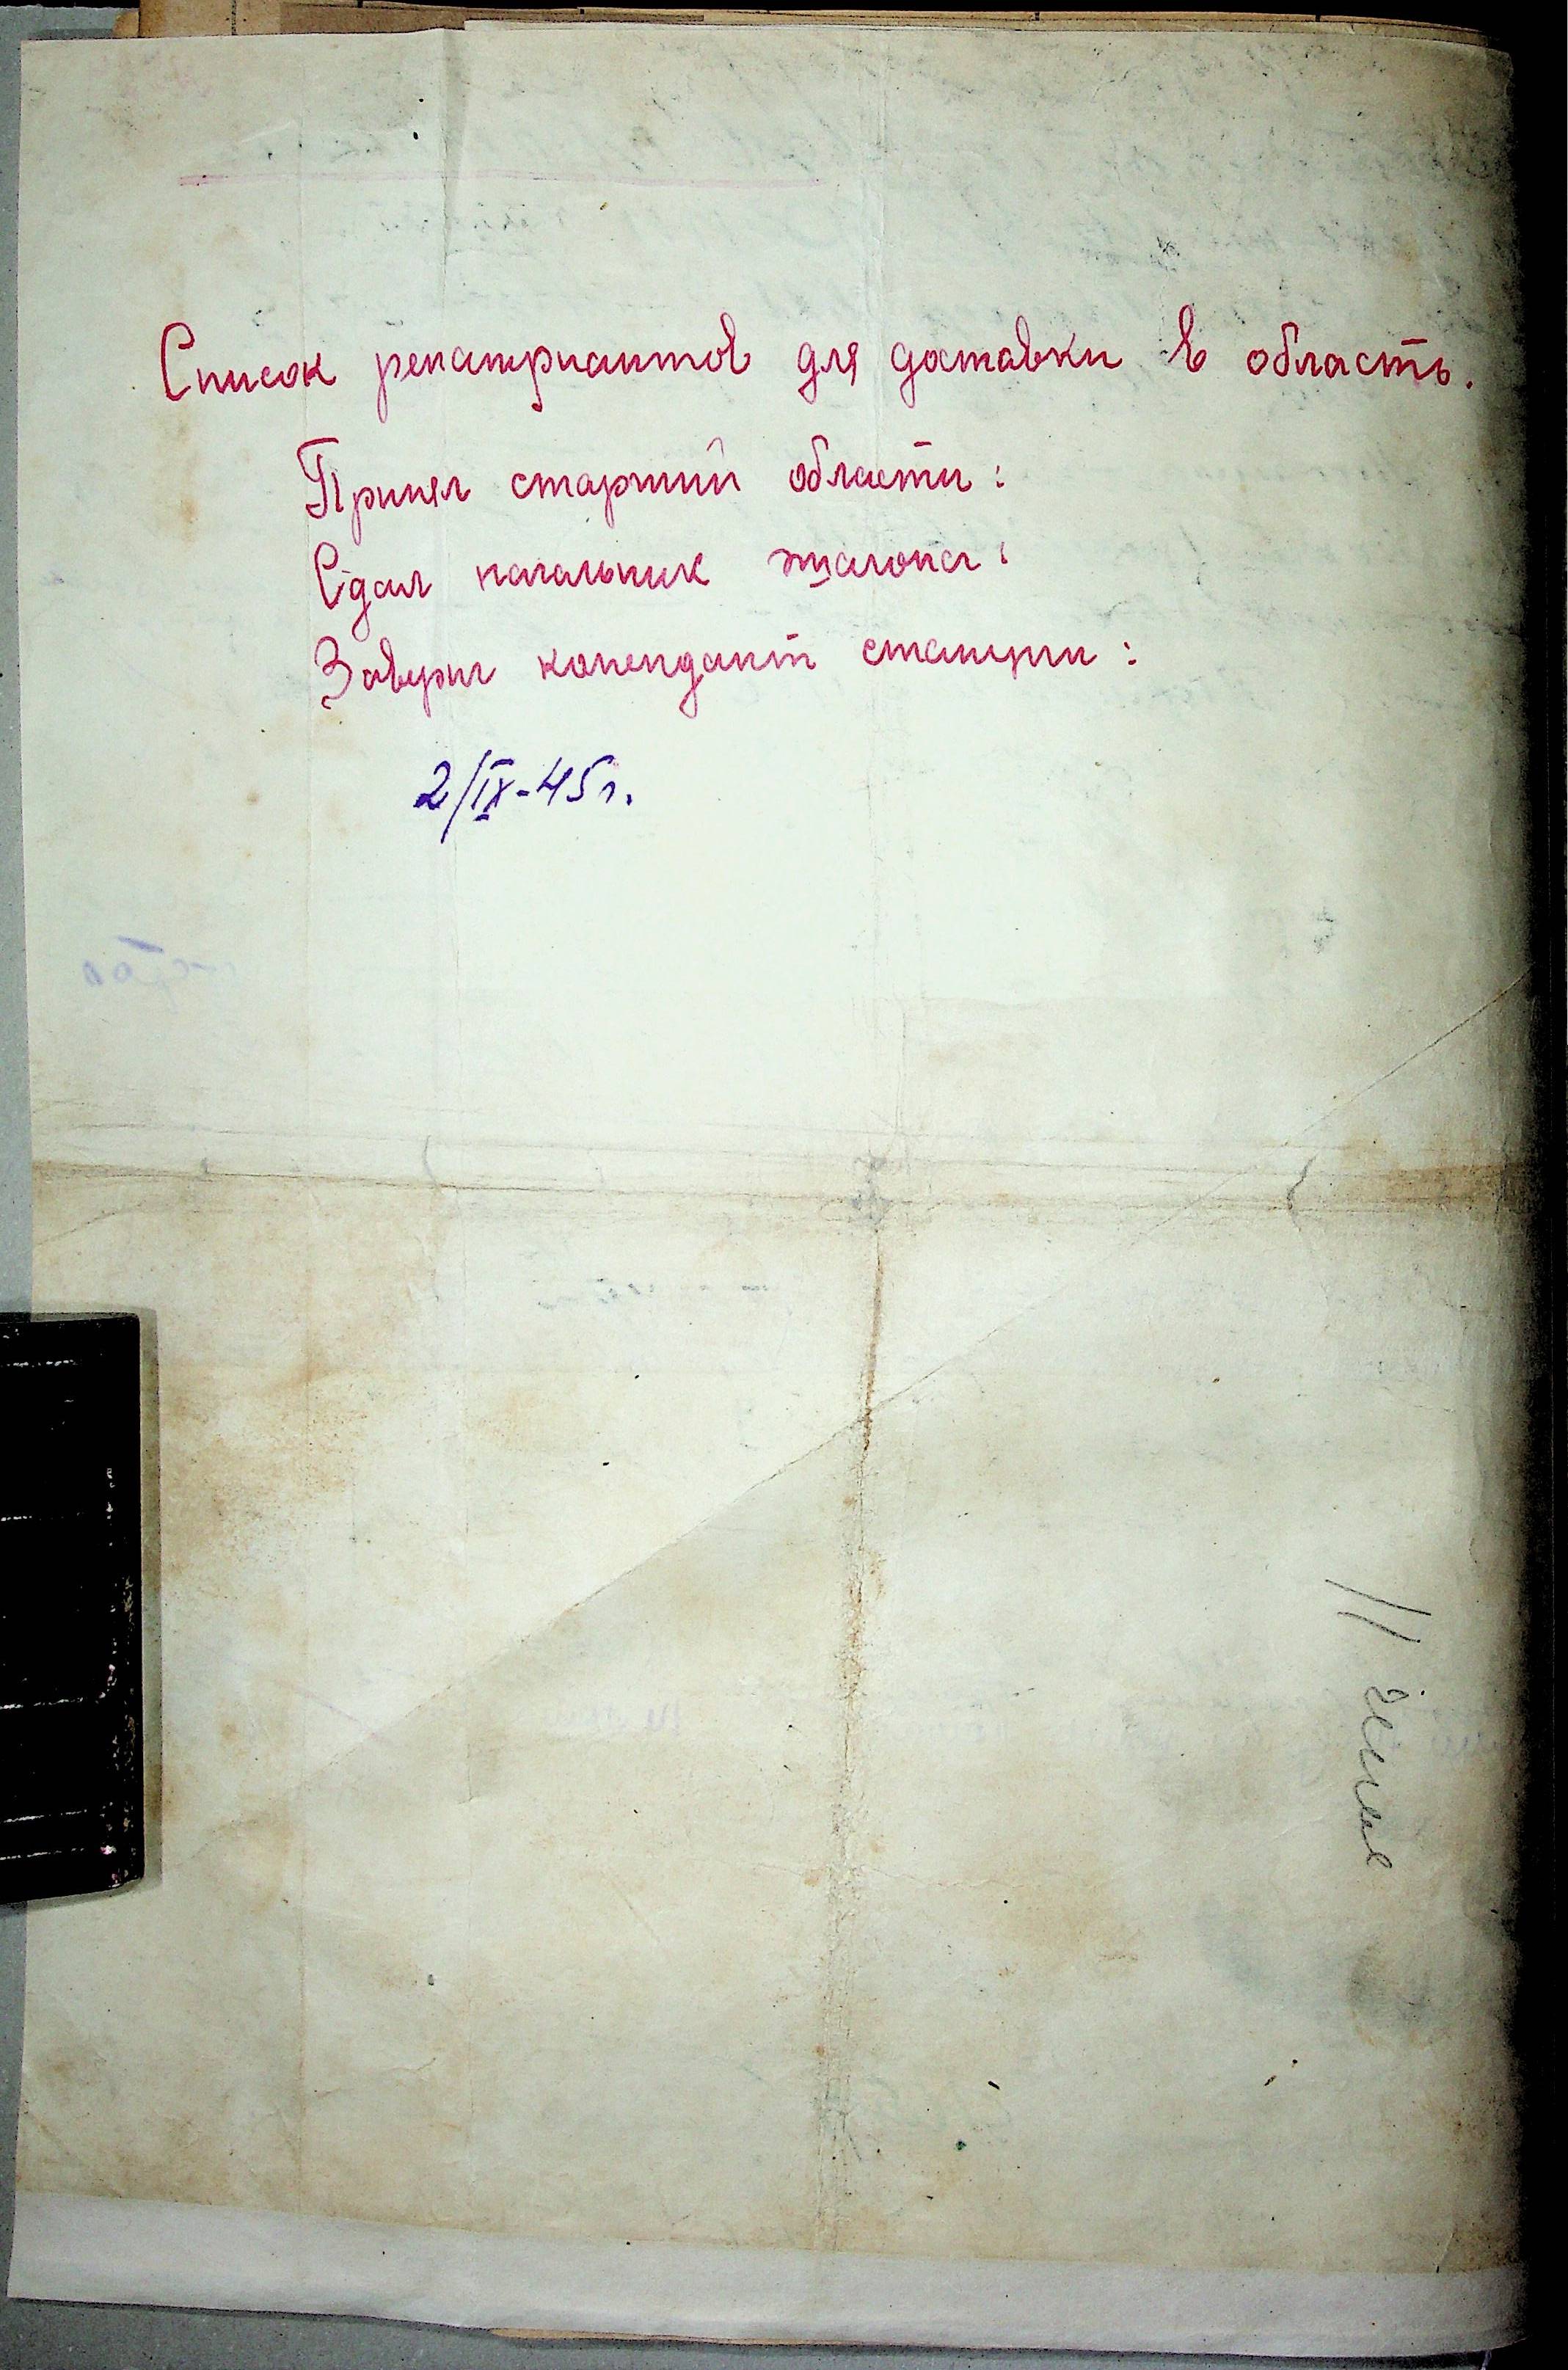 Список репатриантов для доставки в область.
Принял старший области:
Сдал начальник эшалона:
Заверил комендант станции:
2/IX-45г.